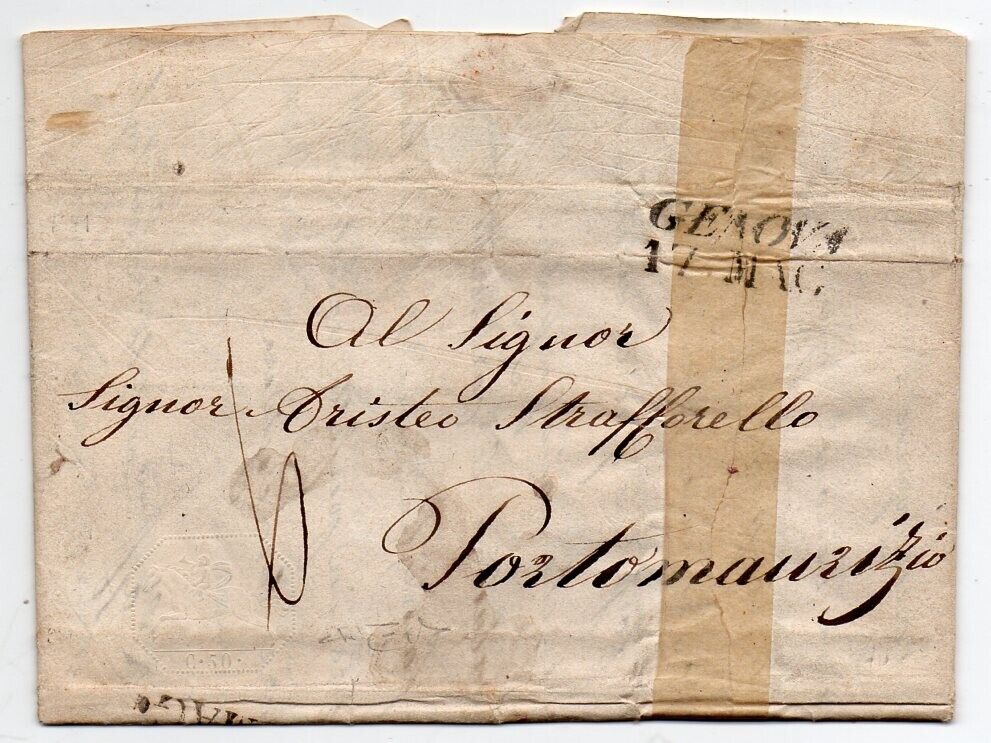 GENOVA
17 MAG
Al Signor
Signor Aristeo Strafforello
Portomaurizio
C. 50.
MAG